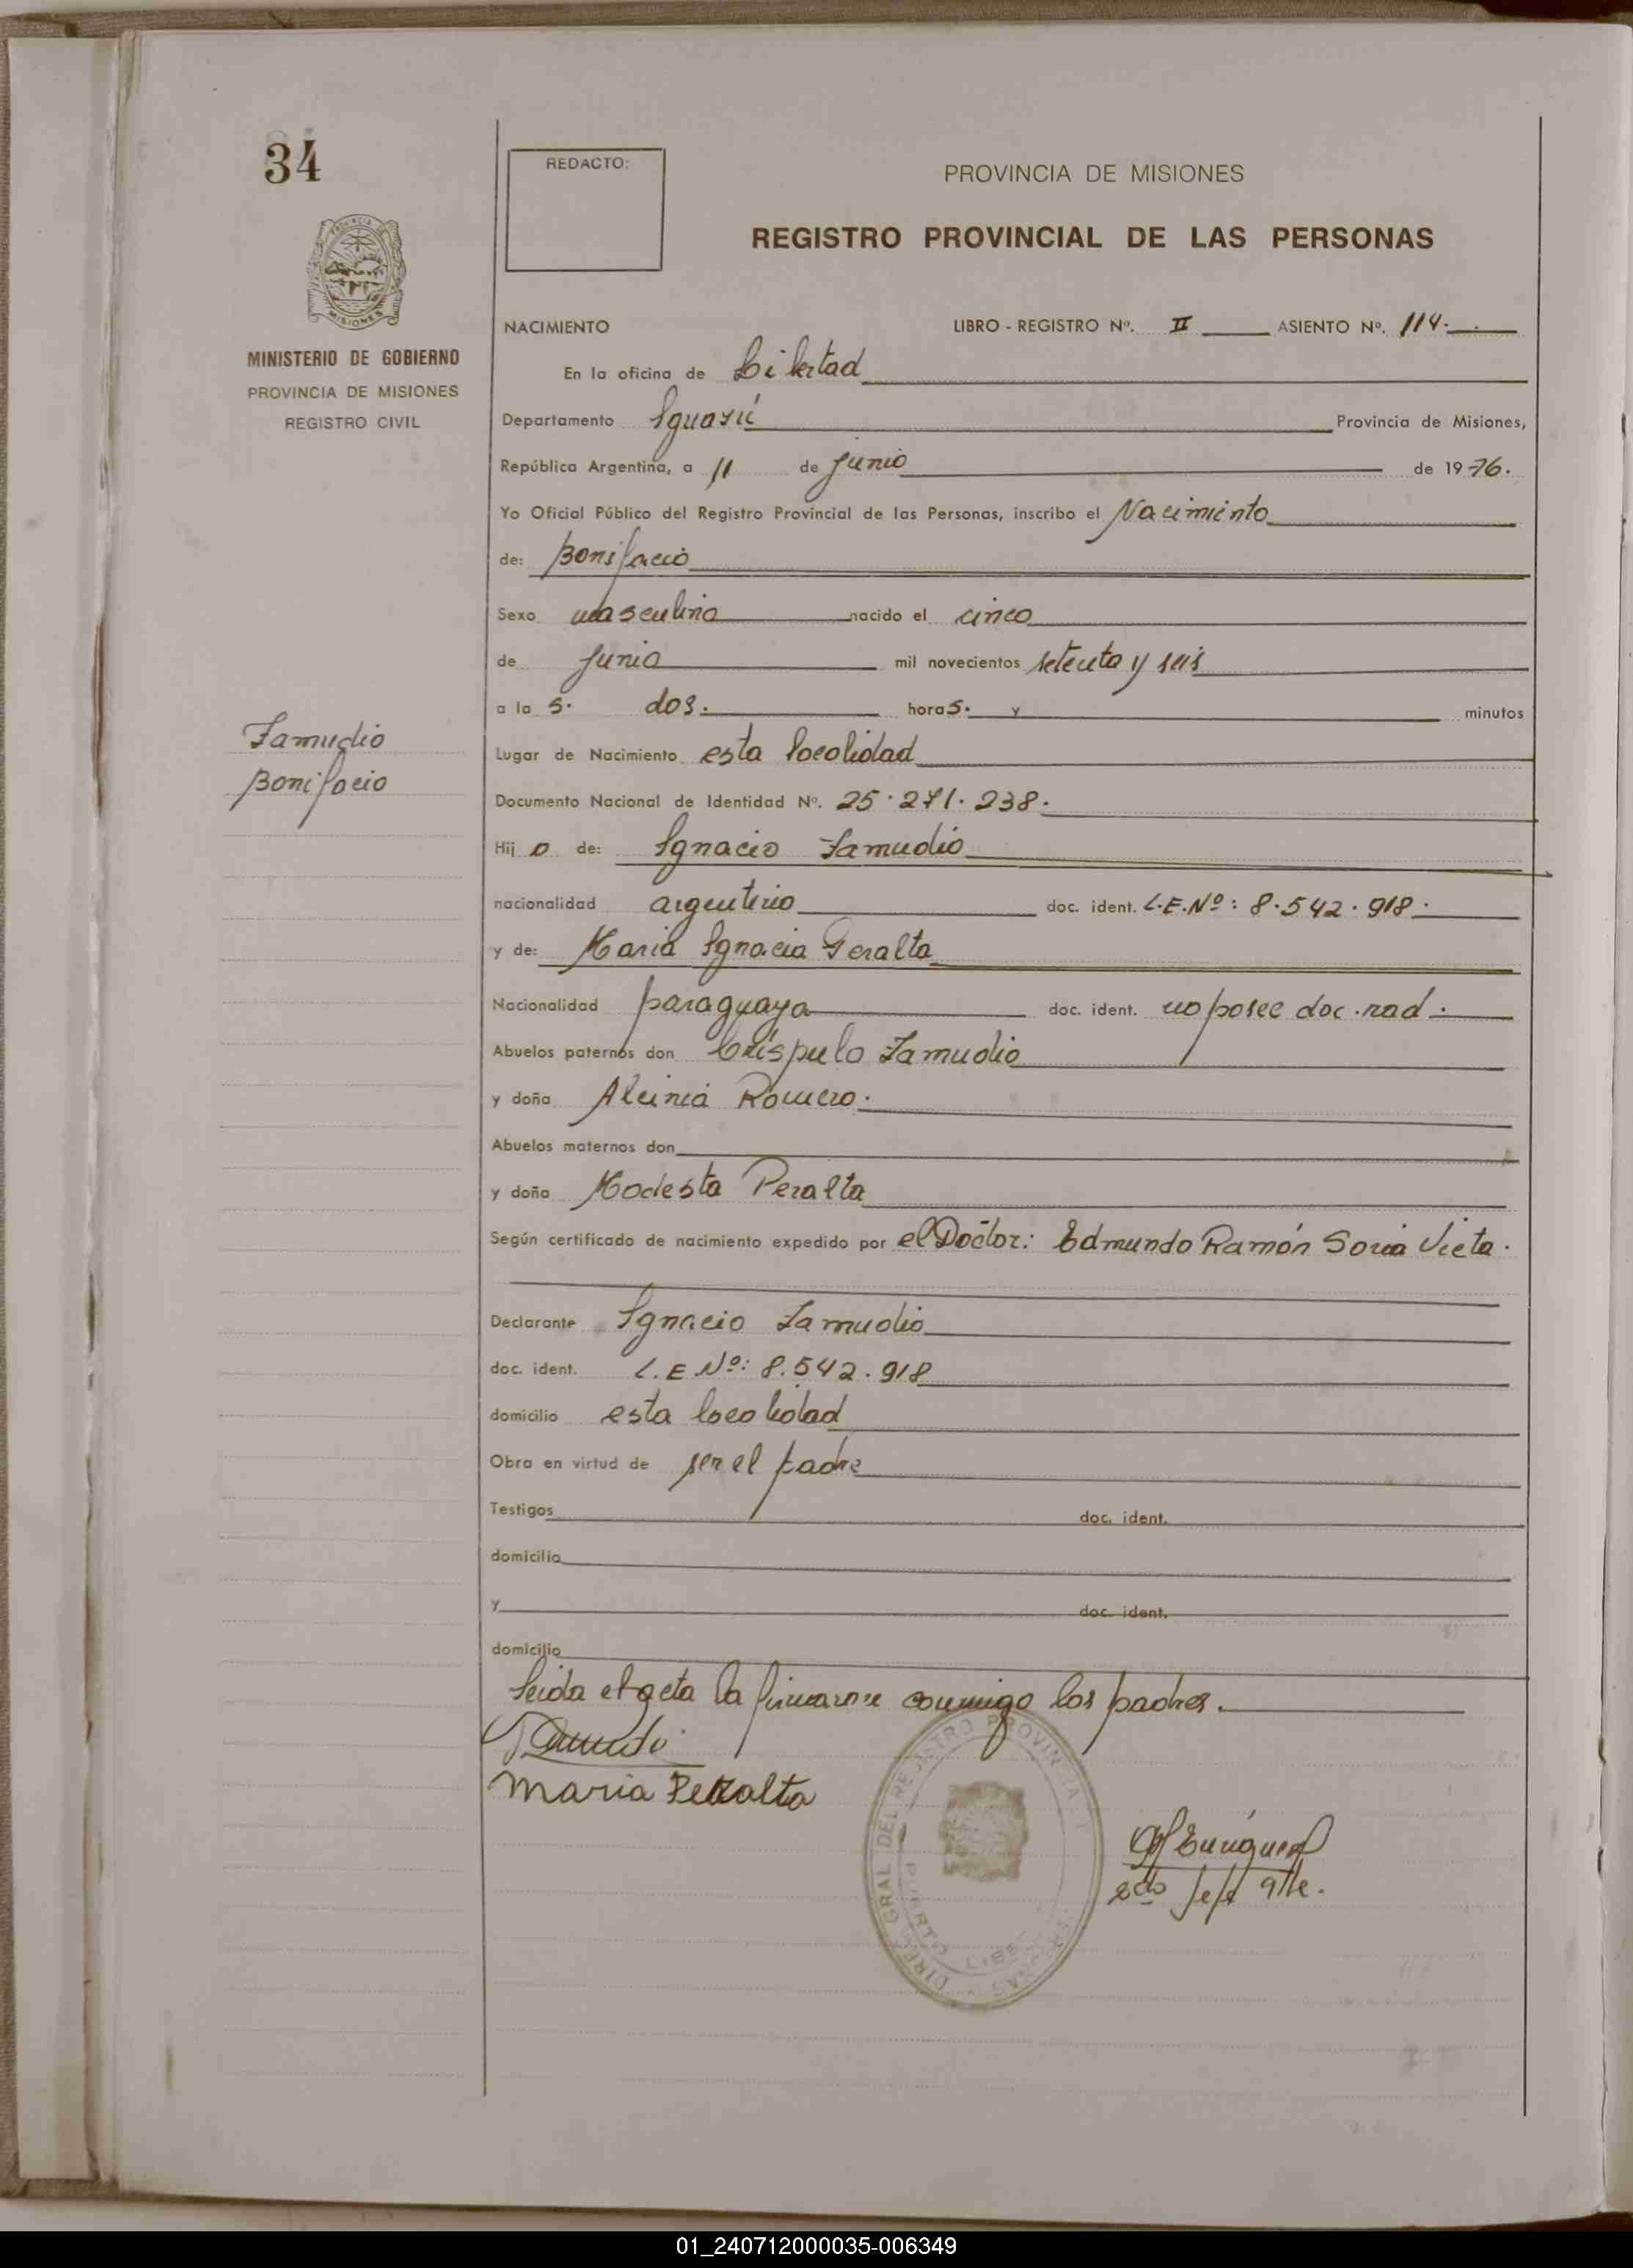 34
REDACTO:
PROVINCIA DE MISIONES
REGISTRO PROVINCIAL DE LAS PERSONAS
MISIONES
MINISTERIO DE GOBIERNO
PROVINCIA DE MISIONES
REGISTRO CIVIL
NACIMIENTO LIBRO - REGISTRO Nº. II ASIENTO Nº. 114.
En la oficina de Libertad
Departamento Iguazú Provincia de Misiones,
República Argentina, a 11 de junio de 1976.
Yo Oficial Público del Registro Provincial de las Personas, inscribo el Nacimiento
de: Bonifacio
Sexo masculino nacido el cinco
de junio mil novecientos setenta y seis
a la s. dos. horas. y minutos
Zamudio
Bonifacio
Lugar de Nacimiento esta localidad
Documento Nacional de Identidad Nº. 25.271.238.
Hij o de: Ignacio Zamudio
nacionalidad argentino doc. ident. L.E.Nº: 8.542.918.
y de: Maria Ignacia Peralta
Nacionalidad paraguaya doc. ident. no posee doc. nad.
Abuelos paternos don Crispulo Zamudio
y doña Alcinia Romero.
Abuelos maternos don
y doña Modesta Peralta
Según certificado de nacimiento expedido por el Doctor: Edmundo Ramón Soria Vieta.
Declarante Ignacio Zamudio
doc. ident. L.E Nº: 8.542.918
domicilio esta localidad
Obra en virtud de ser el padre
Testigos doc. ident.
domicilio
y doc. ident.
domicilio
Leida el acta la firmaron conmigo los padres.
Maria Peralta
DIREC. GRAL DEL REGISTRO PROVINCIAL
PUERTO LIBE
Enriquez
Jefe
01_240712000035-006349